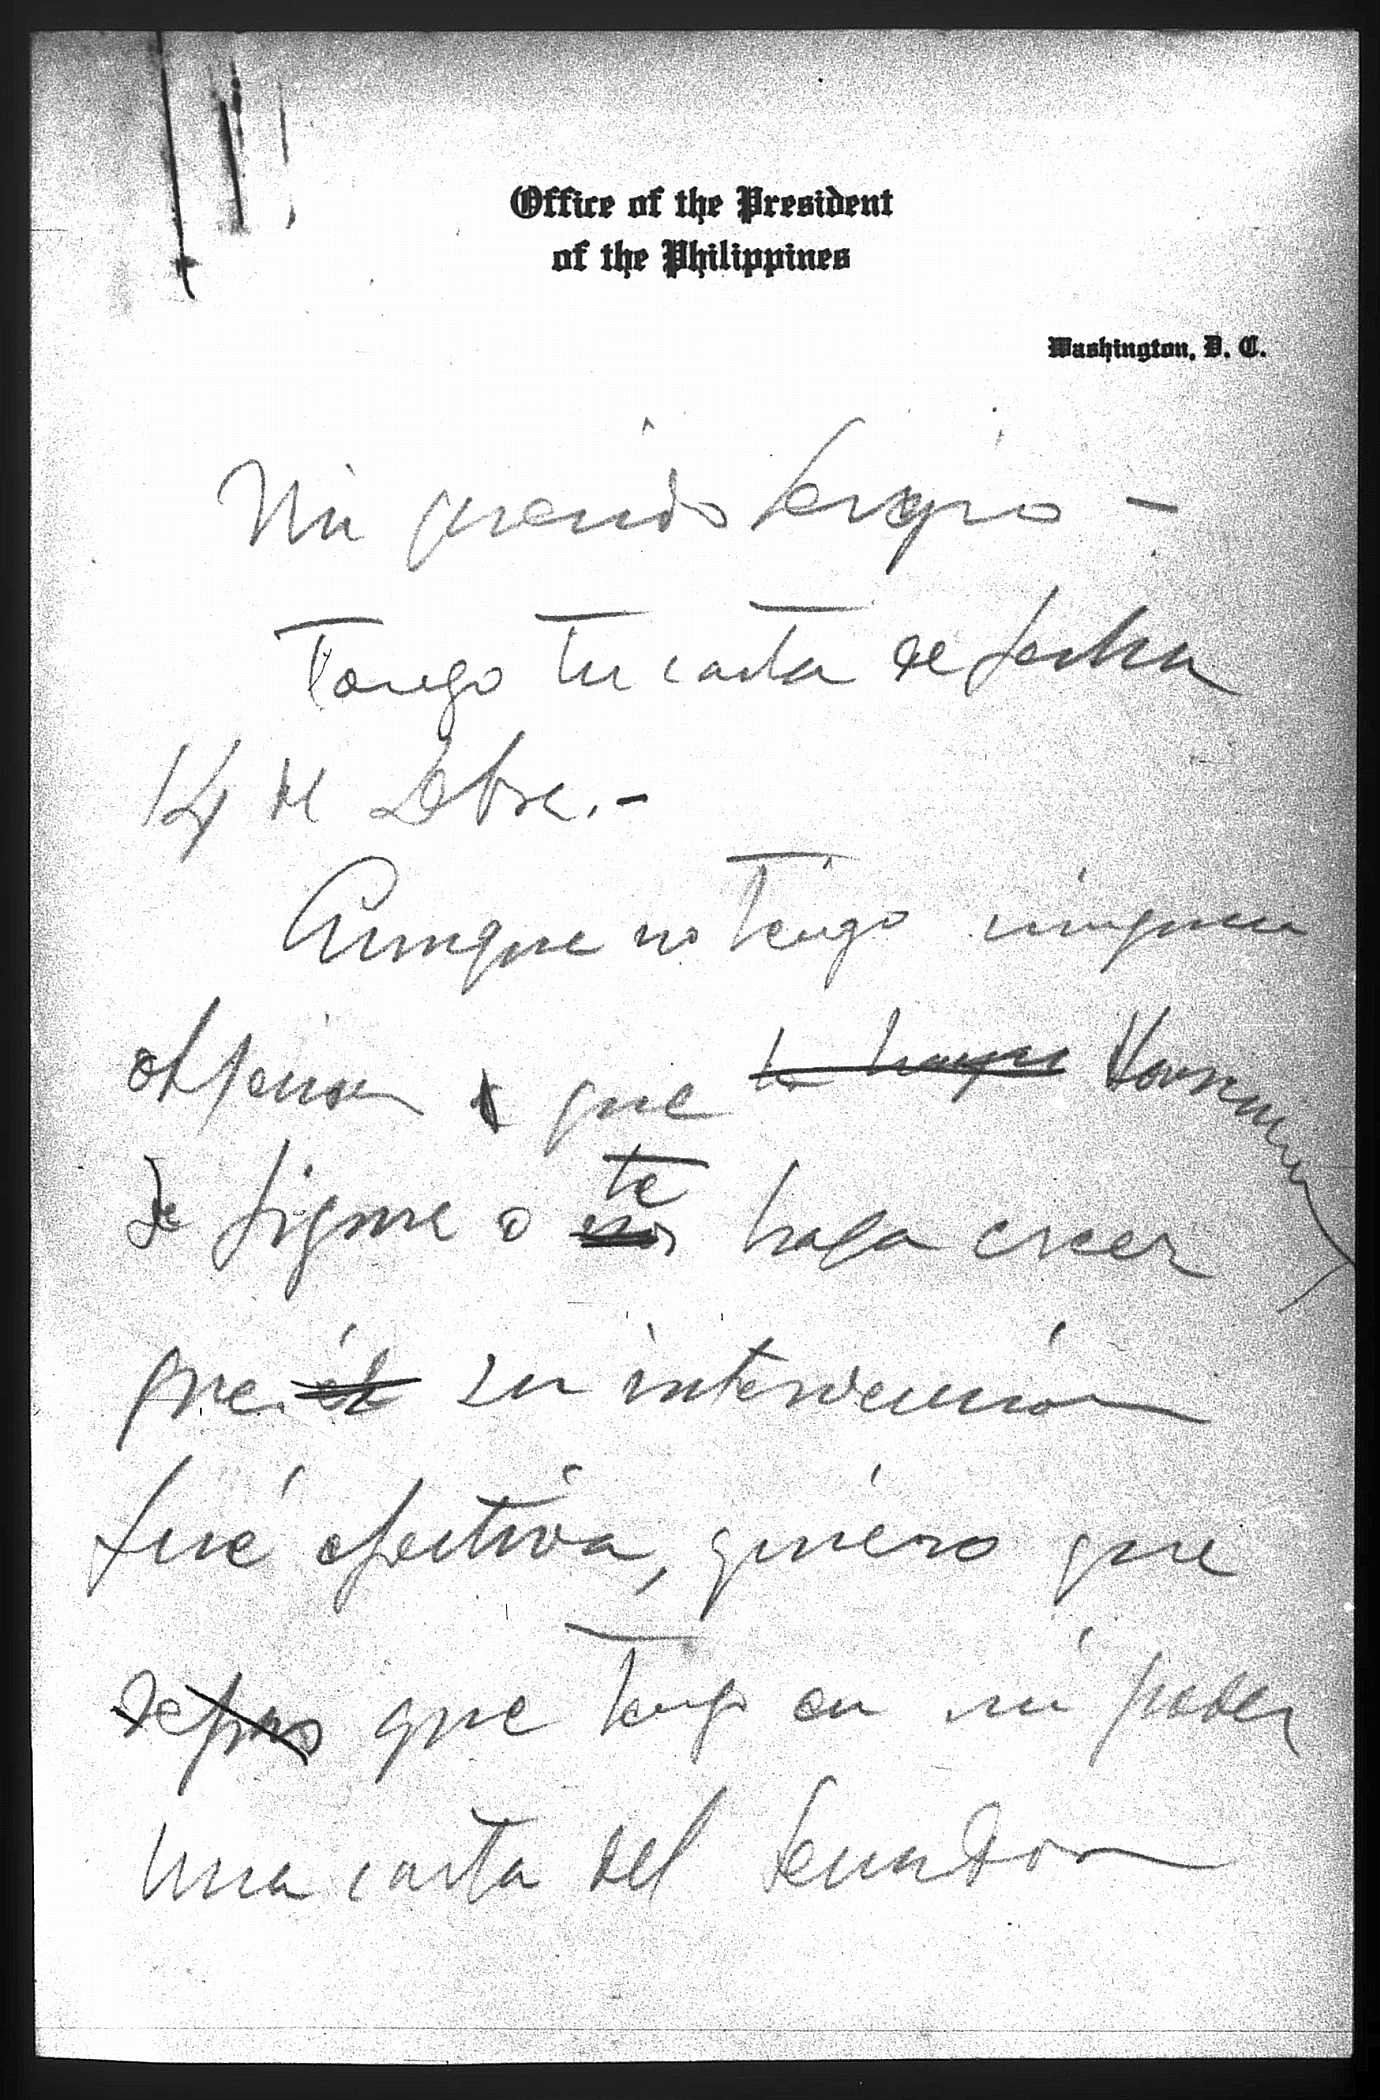 Office of the President
of the Philippines
Washington, D. C.
Mi querido Sergio –
Tengo tu carta de fecha
14 de Dbre. –
Aunque no tengo ninguna
objecion a que
se figure o te haga creer
que él su intervención
fué efectiva, quiero que
sepas que tengo en mi poder
una carta del Senador